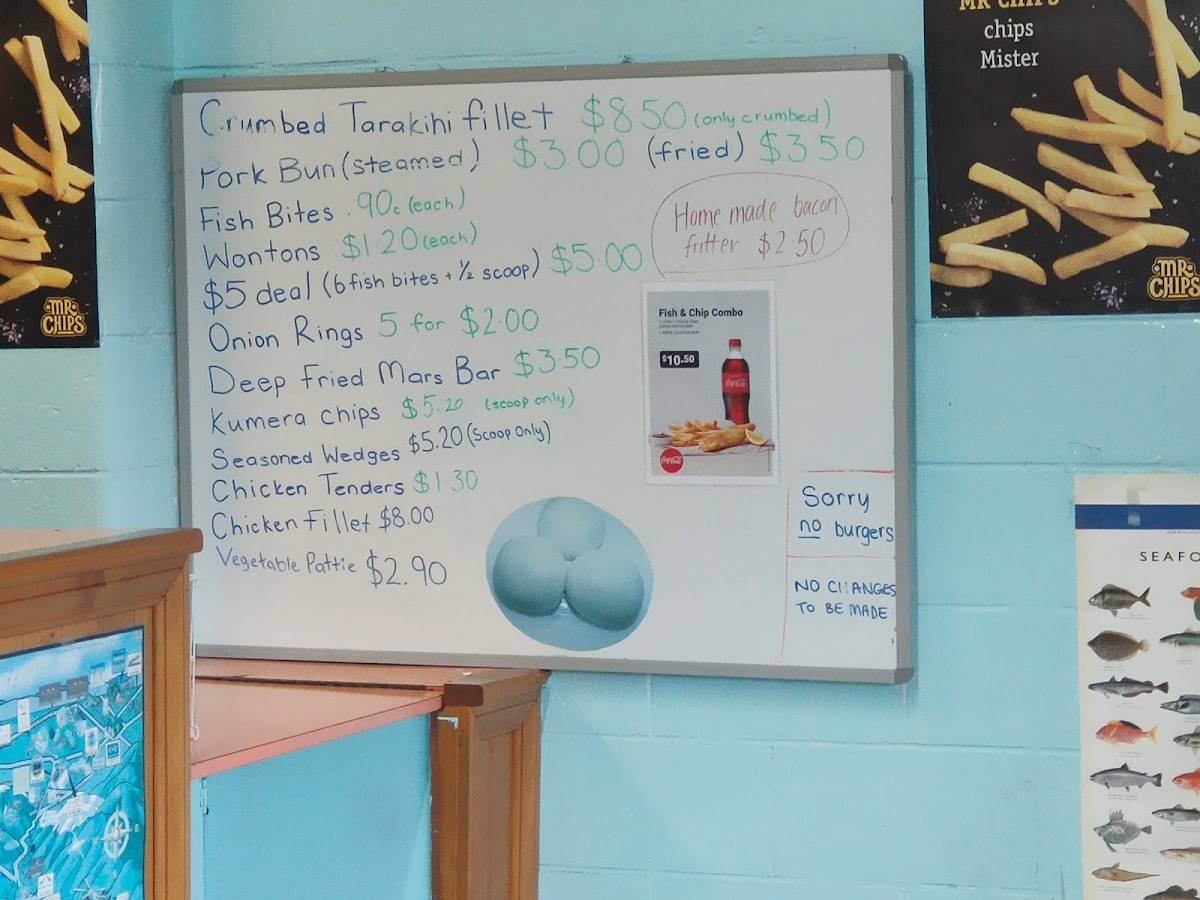 MR CHIPS
chips
Mister
Crumbed Tarakihi fillet $8.50 (only crumbed)
Pork Bun (steamed) $3.00 (fried) $3.50
Fish Bites .90c (each)
Wontons $1.20 (each)
$5 deal (6 fish bites + ½ scoop) $5.00
Home made bacon
fritter $2.50
Onion Rings 5 for $2.00
Deep Fried Mars Bar $3.50
Kumera chips $5.20 (scoop only)
Seasoned Wedges $5.20 (Scoop Only)
Chicken Tenders $1.30
Chicken Fillet $8.00
Vegetable Pattie $2.90
Fish & Chip Combo
$10.50
Coca-Cola
Coca-Cola
Sorry
no burgers
NO CHANGES
TO BE MADE
MR
CHIPS
MR
CHIPS
SEAFO